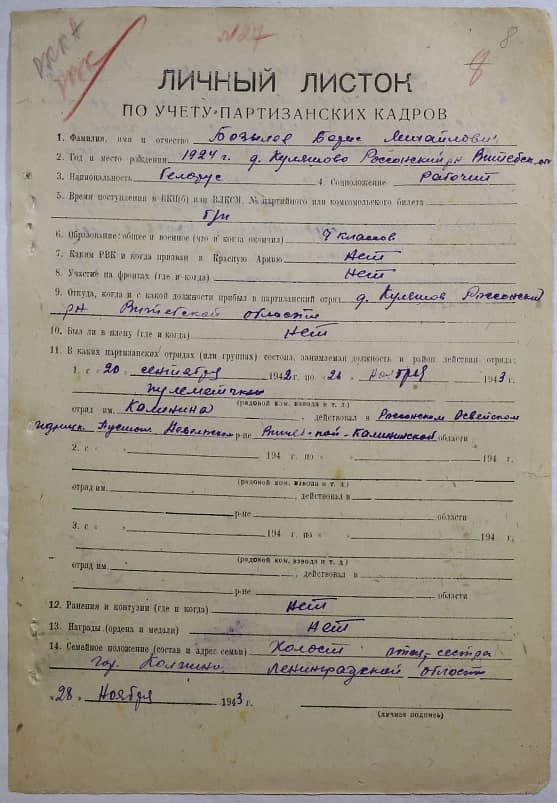 РККА
РКК
№27
8
8
ЛИЧНЫЙ ЛИСТОК
ПО УЧЕТУ ПАРТИЗАНСКИХ КАДРОВ
1. Фамилия, имя и отчество Борис Михайлович
2. Год и место рождения 1924 г. д. Куляшово Россонский рн Витебск.
3. Национальность Беларус 4. Соцположение Рабочий
5. Время поступления в ВКП(б) или ВЛКСМ, № партийного или комсомольского билета
б/п
6. Образование: общее и военное (что и когда окончил) 7 классов
7. Каким РВК и когда призван в Красную Армию Нет
8. Участие на фронтах (где и когда) Нет
9. Откуда, когда и с какой должности прибыл в партизанский отряд д. Куляшов Россонский
рн Витебской области
10. Был ли в плену (где и когда) Нет
11. В каких партизанских отрядах (или группах) состоял, занимаемая должность и район действия отряда:
1. с «20 сентября 1942 г. по «26 ноября 1943 г.
пулеметчиком
(рядовой ком. взвода и т. д.)
отряд им. Калинина действовал в Россонском Освейском
Идрицк Пустош р-не Калининской области
2. с « » 194 г. по « » 194 г.
(рядовой ком. взвода и т. д.)
отряд им. , действовал в
р-не области
3. с « » 194 г. по « » 194 г.
(рядовой ком. взвода и т. д.)
отряд им. , действовал в
р-не области
12. Ранения и контузии (где и когда) Нет
13. Награды (ордена и медали) Нет
14. Семейное положение (состав и адрес семьи) Холост сестра
гор. Колпино Ленинградской област
«28» Ноября 1943 г.
(личная подпись)